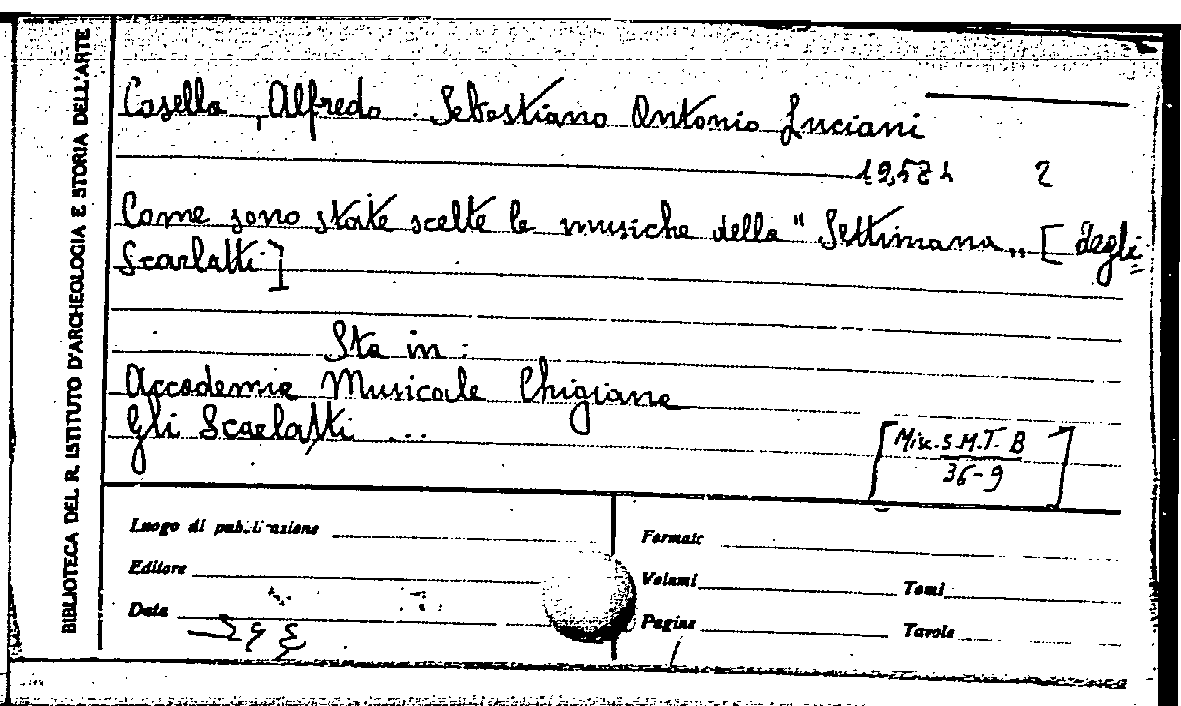 BIBLIOTECA DEL R. ISTITUTO D'ARCHEOLOGIA E STORIA DELL'ARTE
Casella, Alfredo. Sebastiano Antonio Luciani
2
Come sono state scelte le musiche della "Settimana„ [degli
Scarlatti]
Sta in:
Accademia Musicale Chigiana
Gli Scarlatti ...
[Misc. S.M.T. B
36-9]
Luogo di pubblicazione
Editore
Data
Formato
Volumi
Tomi
Pagine
Tavole